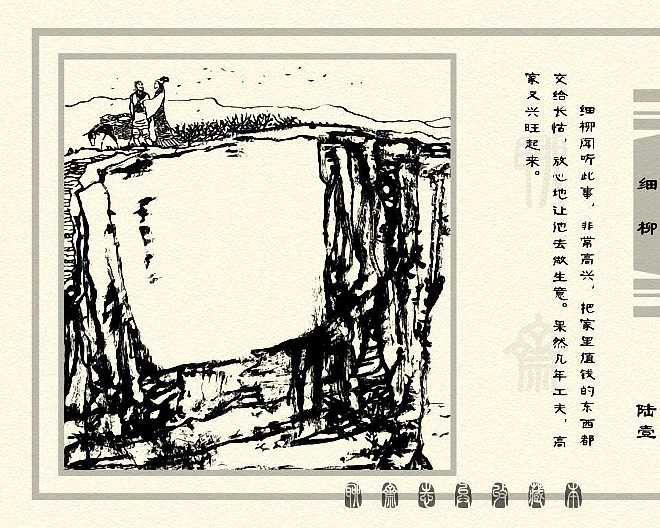 细柳闻听此事，非常高兴，把家里值钱的东西都
交给长怙，放心地让他去做生意。果然几年工夫，高
家又兴旺起来。
细柳
陆壹